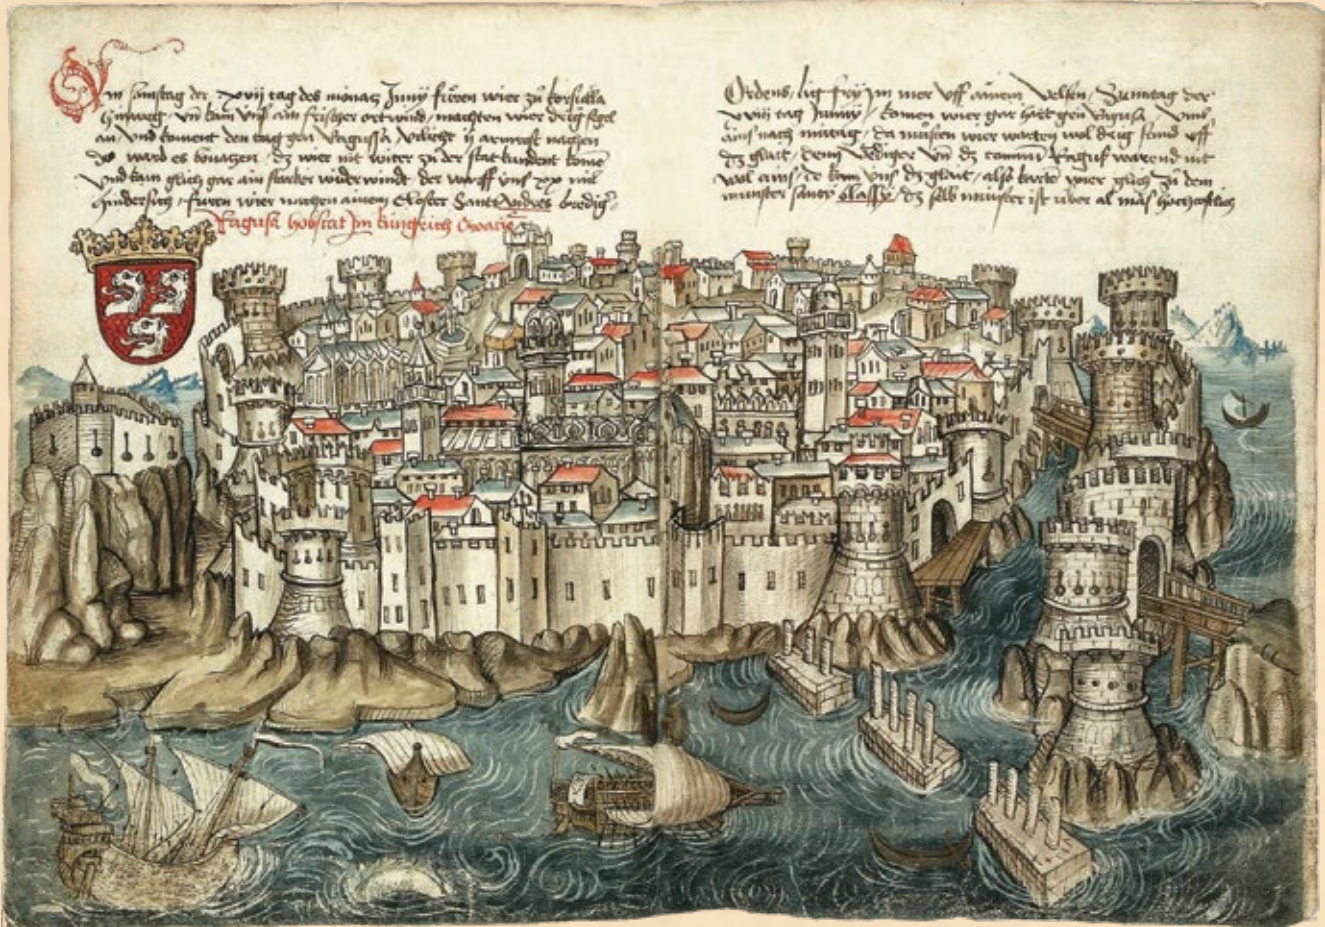 Am samstag der xvij tag des monatz Junij fůren wier zů korsulla
hinweg vn̄ kam vnß ain frischer ortwind machten wier drig segel
an vnd koment den tag gen Ragussa villicht ij armprost nachen
do ward es bonatzen dz wier nit witer zu der stat kundent kome
vnd kam glich gar ain starker widerwind der warff vnß xxx mil
hindersich furen wier nachen ainem closter Sant Andres bredig
Ragusa hobstat jm küngrich Croacie
Ordens lig fry jm mer vff ainem velsen Sunntag der
xviij tag Junij komen wier gar hart gen Ragusa vmb
ains nach mitag da můsten wier warten wol drig stund vff
dz glait denn Vediger vn̄ dz comun Raguß warend nit
wol ains do kam vns dz glait also karte wier glich zů dem
munster santt Blassy dz selb munster ist uber al mas hochzitlich